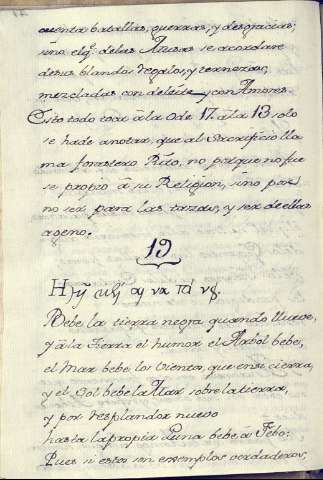 cuenta batallas, guerras, y desgracias;
sino el q. delas Musas se acordare
desus blandos regalos, y ternezas,
mezcladas con deleite, y con Amores.
Esto todo toca àla Ode 17 àla 13 solo
se hade anotar, que al Sacrificio lla
ma forastero Rito, no porque no fue
se propio à su Religion, sino por
no ser para las tazas, y ser de ellas
ageno.
19
Bebe la tierra negra quando llueve,
y àla tierra el humor el Arbol bebe,
el Mar bebe los vientos, que ensi cierra,
y el Sol bebe la Mar sobre la tierra,
y por resplandor nuevo
hasta la propia Luna bebe à Febo:
Pues si estos son exemplos verdaderos,